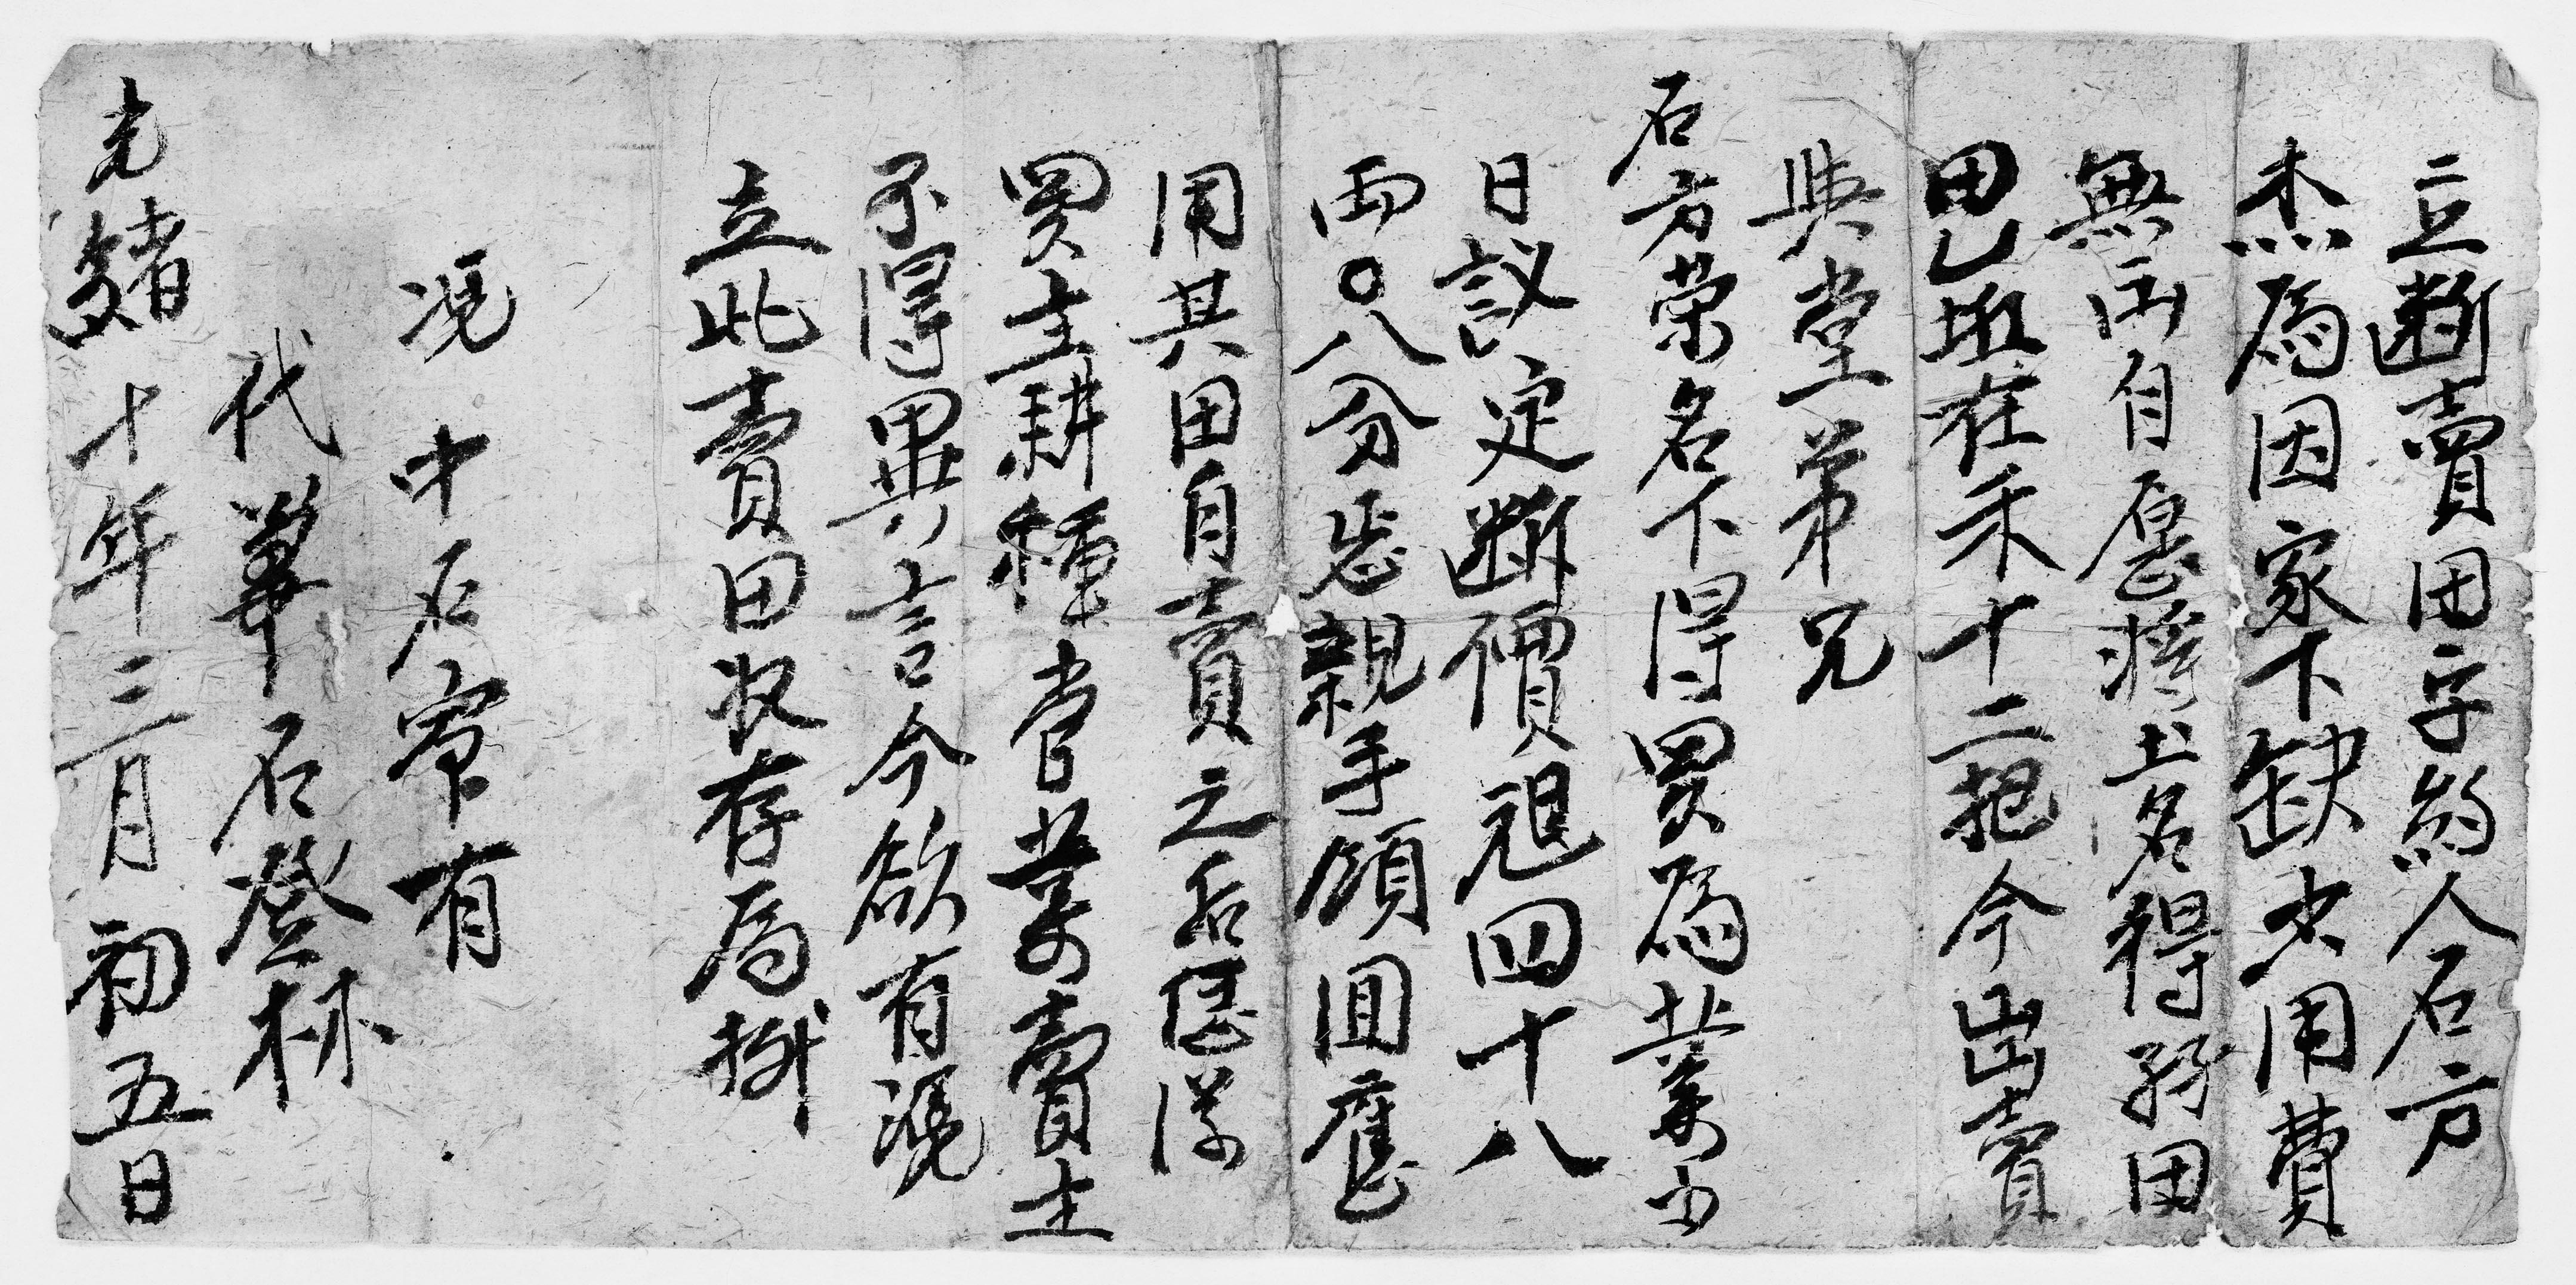 立斷賣田字約人石方
杰為因家下缺少用費
無出自愿將土名得孖田
田乚坵在禾十二把今出賣
與堂弟兄
石方荣名下得買為業当
日議定斷價銀四十八
兩〇八分恁親手領囬應
用其田自賣之后任從
買主耕種管業賣主
不得異言今欲有憑
立此賣田収存為據
凴中石甯有
代筆石登林
光緒十年三月初五日